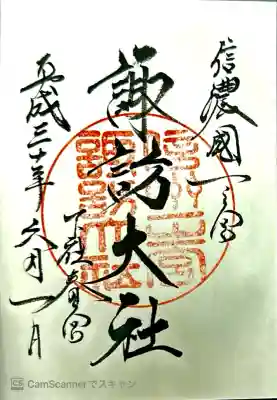 信濃國一之宮
諏訪大社
下社春宮
平成三十年六月一日
CS CamScannerでスキャン